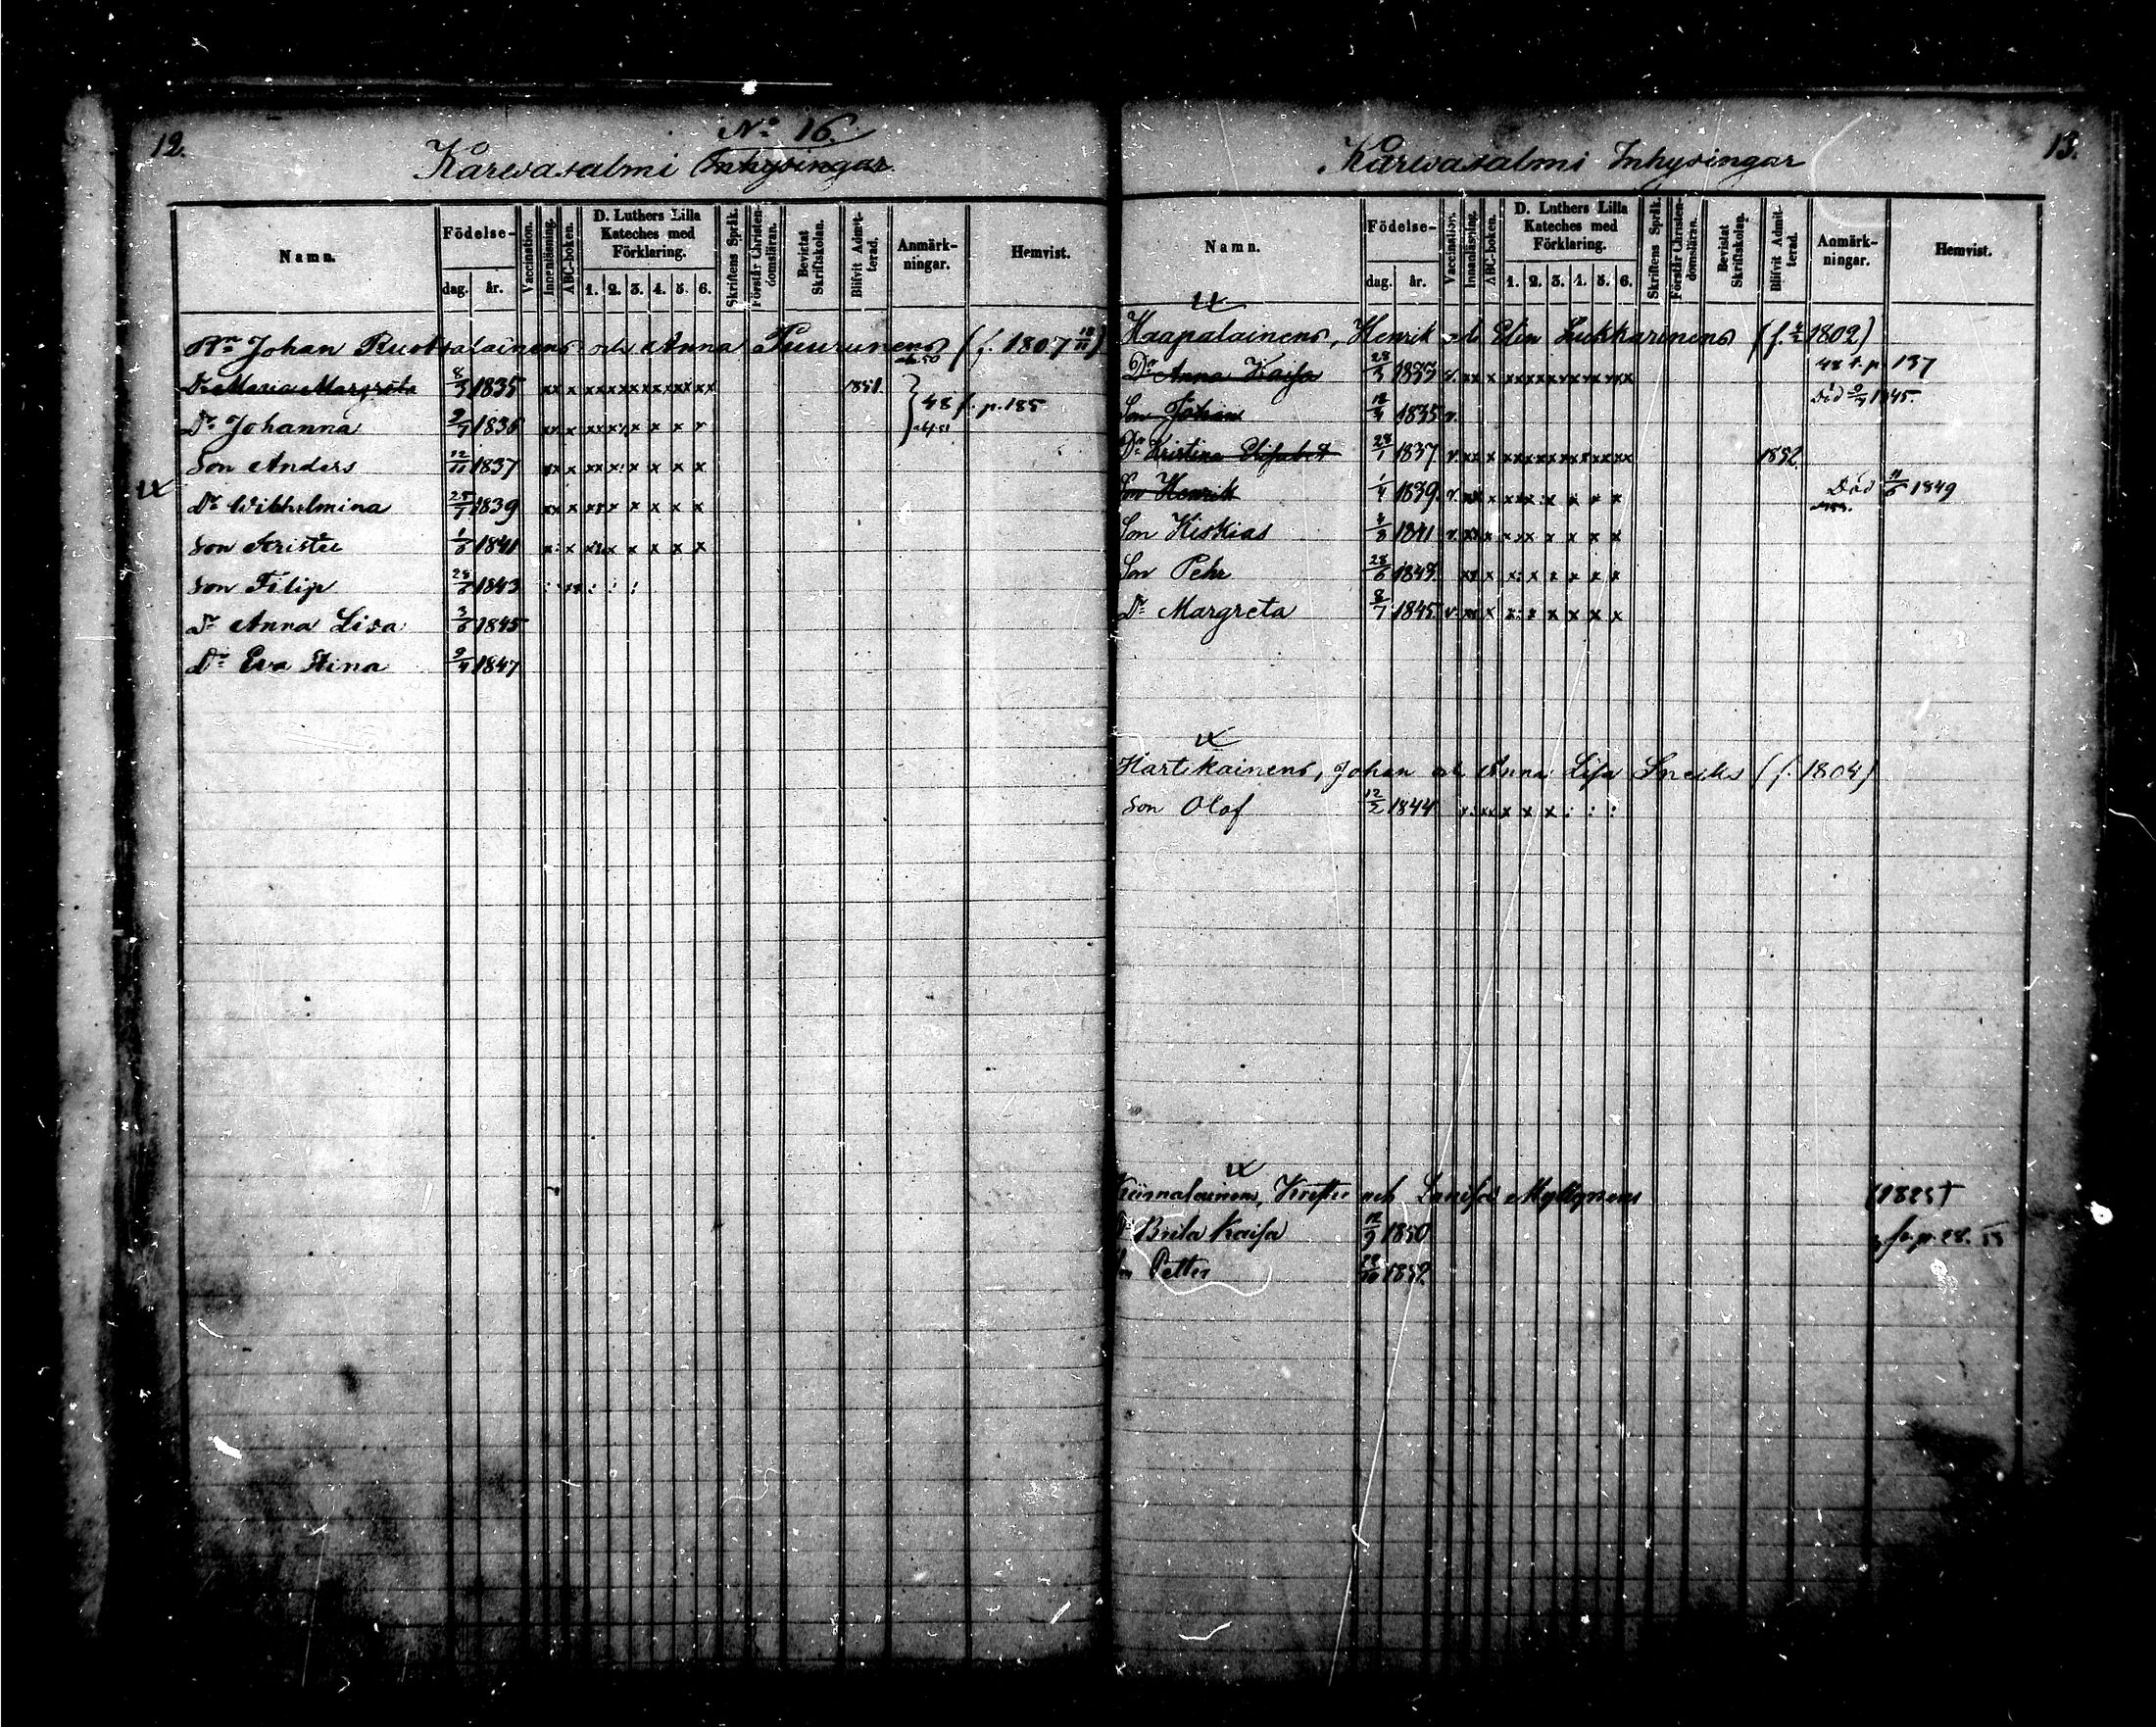 12.
No 16.
Karwasalmi Inhysingar.
Namn.
Födelse-
dag. år.
Vaccination.
Innenläsning.
ABC-boken.
D. Luthers Lilla Kateches med Förklaring.
1. 2. 3. 4. 5. 6.
Skriftens Språk.
Förstår Christendomsläran.
Bevistat Skriftskolan.
Blifvit Admitterad.
Anmärkningar.
Hemvist.
Bn Johan Ruotsalainens och Anna Puurunens (f. 1807 18/11)
Dr Maria Margreta 8/3 1835 xx x xx xx xx xx xx xx 1851
Dr Johanna 9/7 1836 xx x xx x x x x x 48 f. p. 185
Son Anders 12/11 1837 xx x xx x: x x x x
Dr Wilhelmina 25/7 1839 xx x xx x x x x x
Son Krister 1/6 1841 x: x x x x x x
Son Filip 28/6 1843 : xx : : :
Dr Anna Lisa 3/6 1845
Dr Eva Stina 9/4 1847
13.
Karwasalmi Inhysingar
Namn.
Födelse-
dag. år.
Vaccination.
Innanläsning.
ABC-boken.
D. Luthers Lilla Kateches med Förklaring.
1. 2. 3. 4. 5. 6.
Skriftens Språk.
Förstår Christendomsläran.
Bevistat Skriftskolan.
Blifvit Admitterad.
Anmärkningar.
Hemvist.
Haapalainens, Henrik och Elin Lukkarinens (f. 1802)
Dr Anna Kaisa 28/3 1833 v. xx x xx xx xx xx xx xx 48 f. p 137
Son Johan 12/4 1835 v. Död 1845.
Dr Kristina Elisabet 28/1 1837 v. xx x xx xx xx xx xx xx 1852
Son Henrik 1/4 1839 v. xx x x x x x x x Död 11/6 1849
Son Kiskias 4/3 1841 v. xx x x x x x x x
Son Pehr 28/6 1843 xx x x: x x x x x
Dr Margreta 8/7 1845 v. xx x x: x x x x x
Hartikainens, Johan och Anna Lisa Sneiks (f. 1804)
Son Olof 12/2 1844 x: xx x x x : : :
Krister och Lovisa (1825)
Dr Brita Kaisa 12/9 1850 fr. p. 28.
Son Petter 28/10 1852